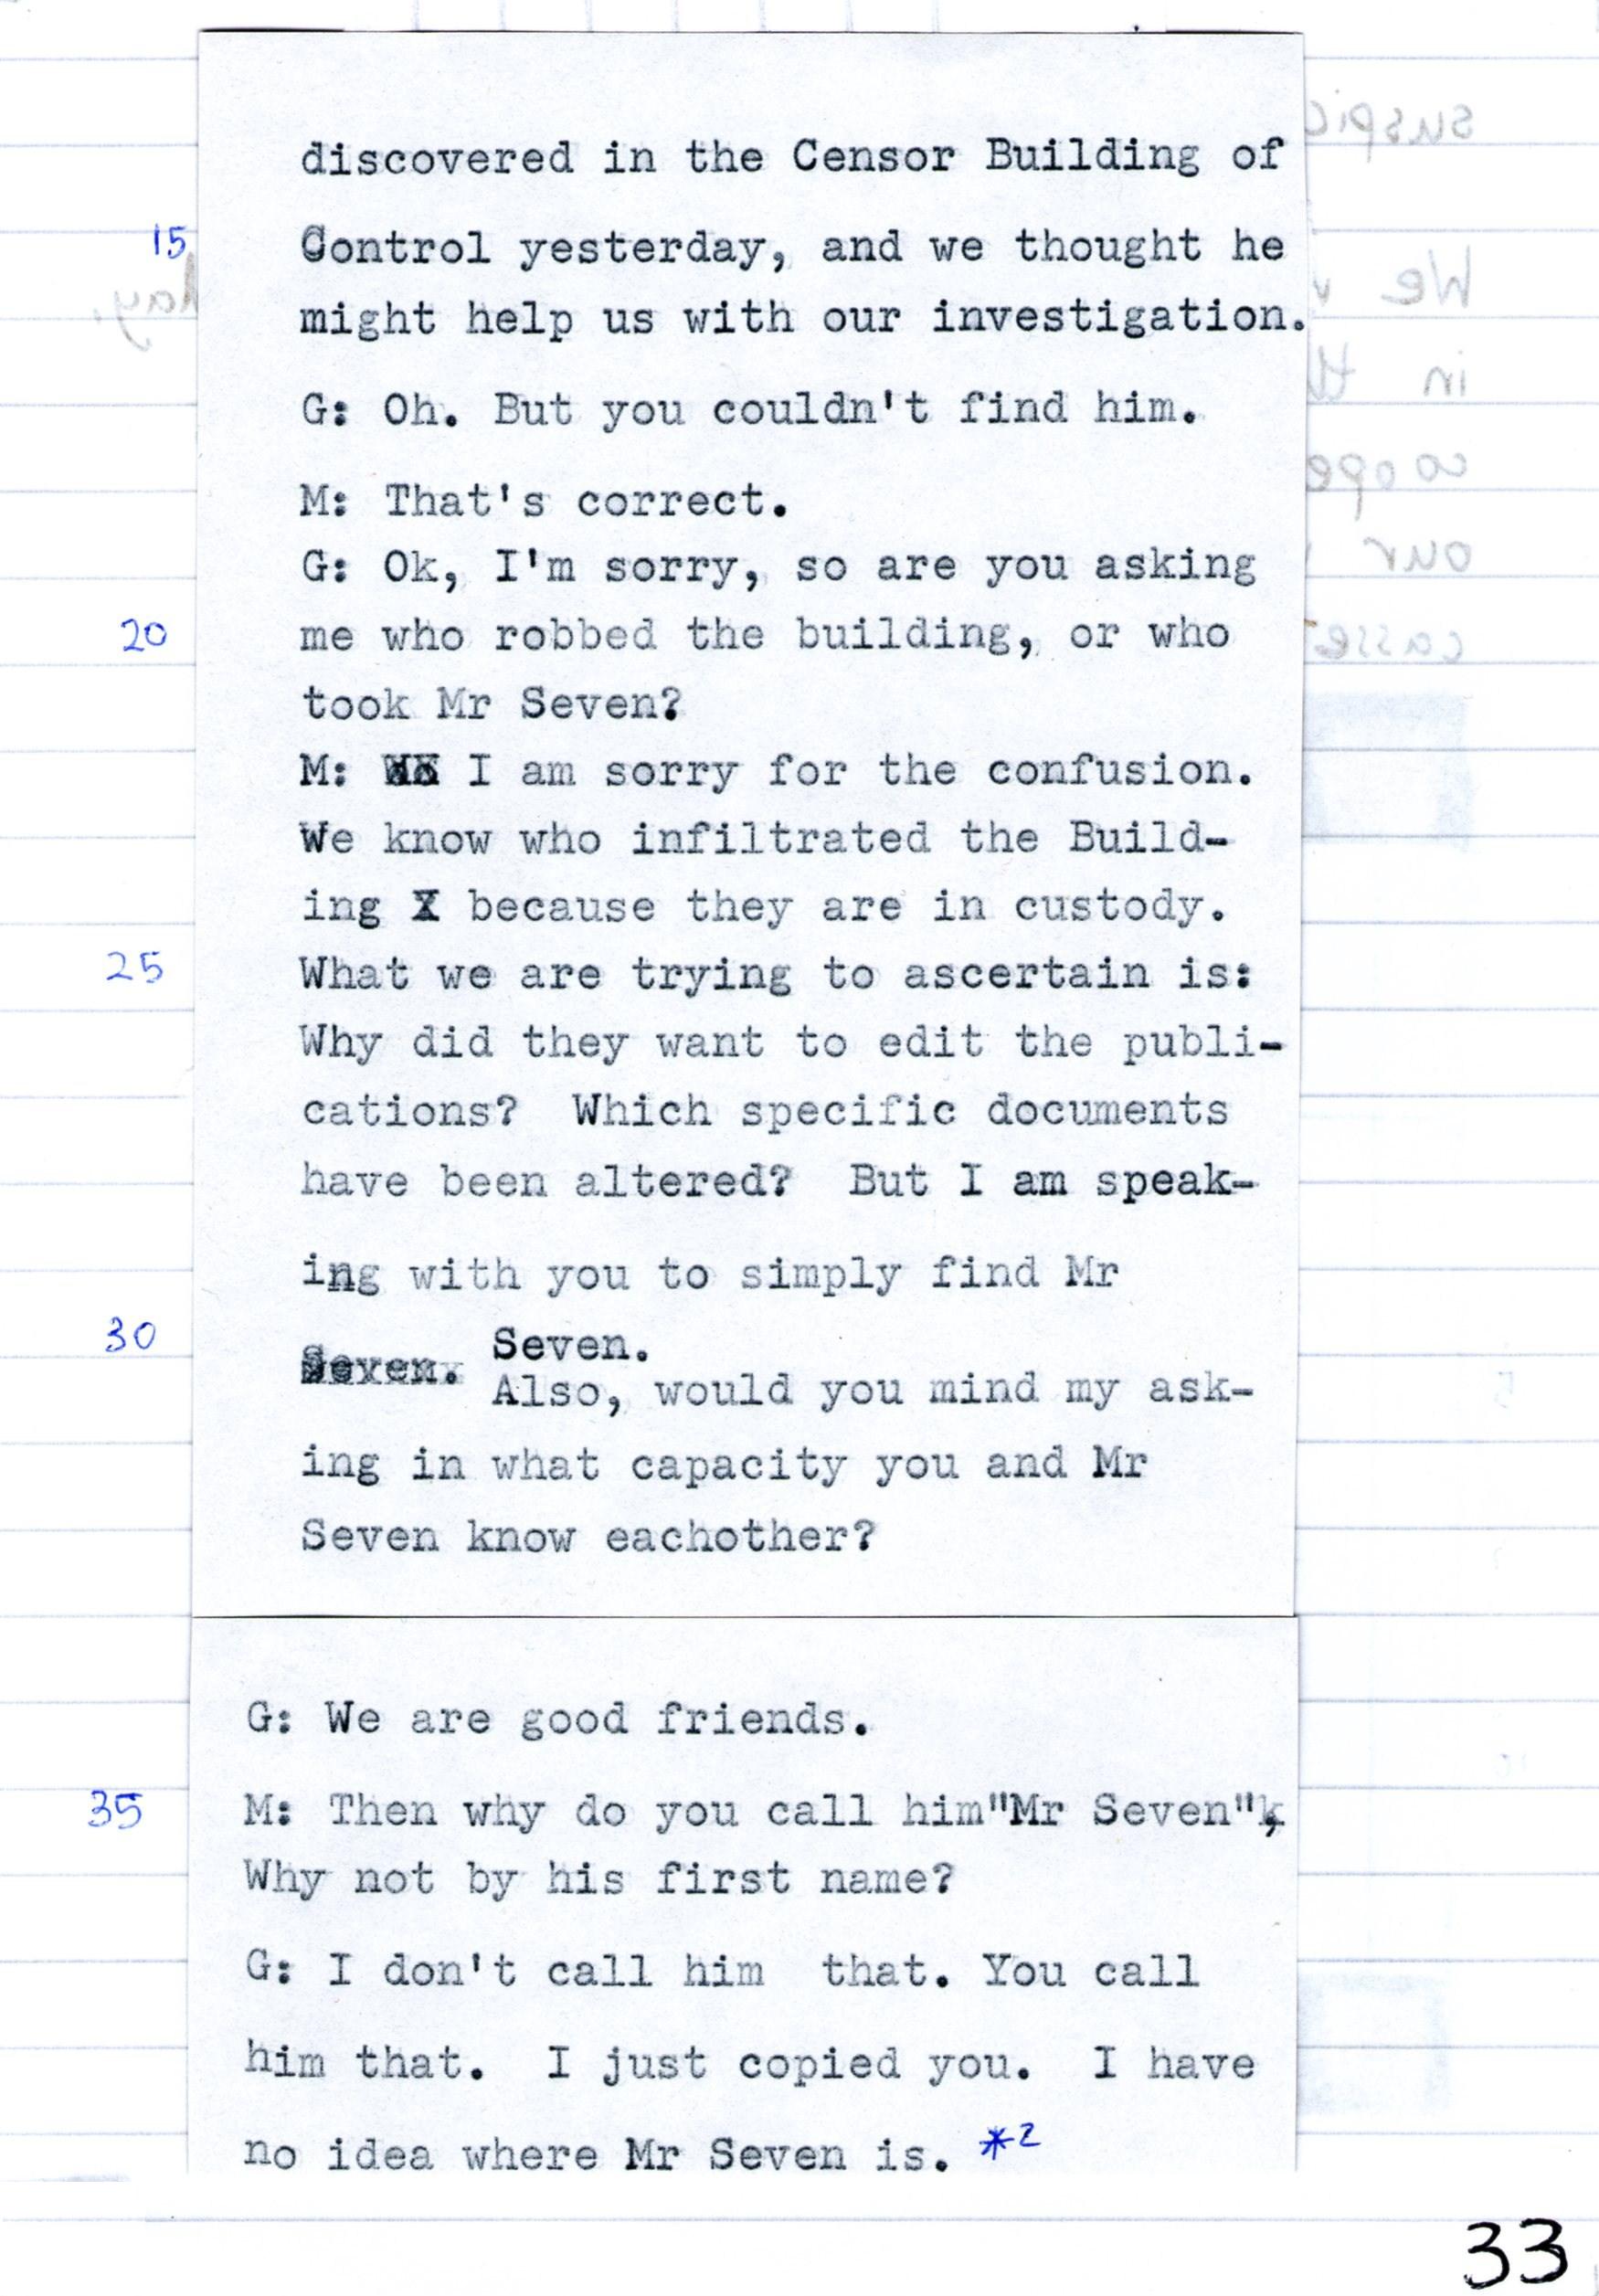 discovered in the Censor Building of
15 Control yesterday, and we thought he
might help us with our investigation.
G: Oh. But you couldn't find him.
M: That's correct.
G: Ok, I'm sorry, so are you asking
20 me who robbed the building, or who
took Mr Seven?
M: I am sorry for the confusion.
We know who infiltrated the Build-
ing X because they are in custody.
25 What we are trying to ascertain is:
Why did they want to edit the publi-
cations?  Which specific documents
have been altered?  But I am speak-
ing with you to simply find Mr
30 Seven. Seven.
Also, would you mind my ask-
ing in what capacity you and Mr
Seven know eachother?
G: We are good friends.
35 M: Then why do you call him"Mr Seven",
Why not by his first name?
G: I don't call him  that. You call
him that.  I just copied you.  I have
no idea where Mr Seven is. *2
33